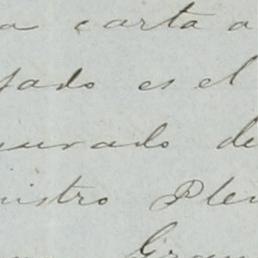 a carta a
sado es el
urado de
nistro Plen
Gran